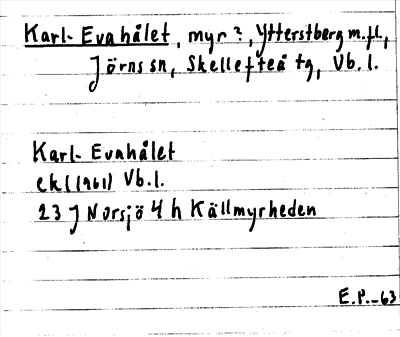 Karl-Evahålet, myr?, Ytterstberg m.fl.,
Jörns sn, Skellefteå tg, Vb. l.
Karl-Evahålet
ek (1961) Vb. l.
23 J Norsjö 4 h Källmyrheden
E.P.-63